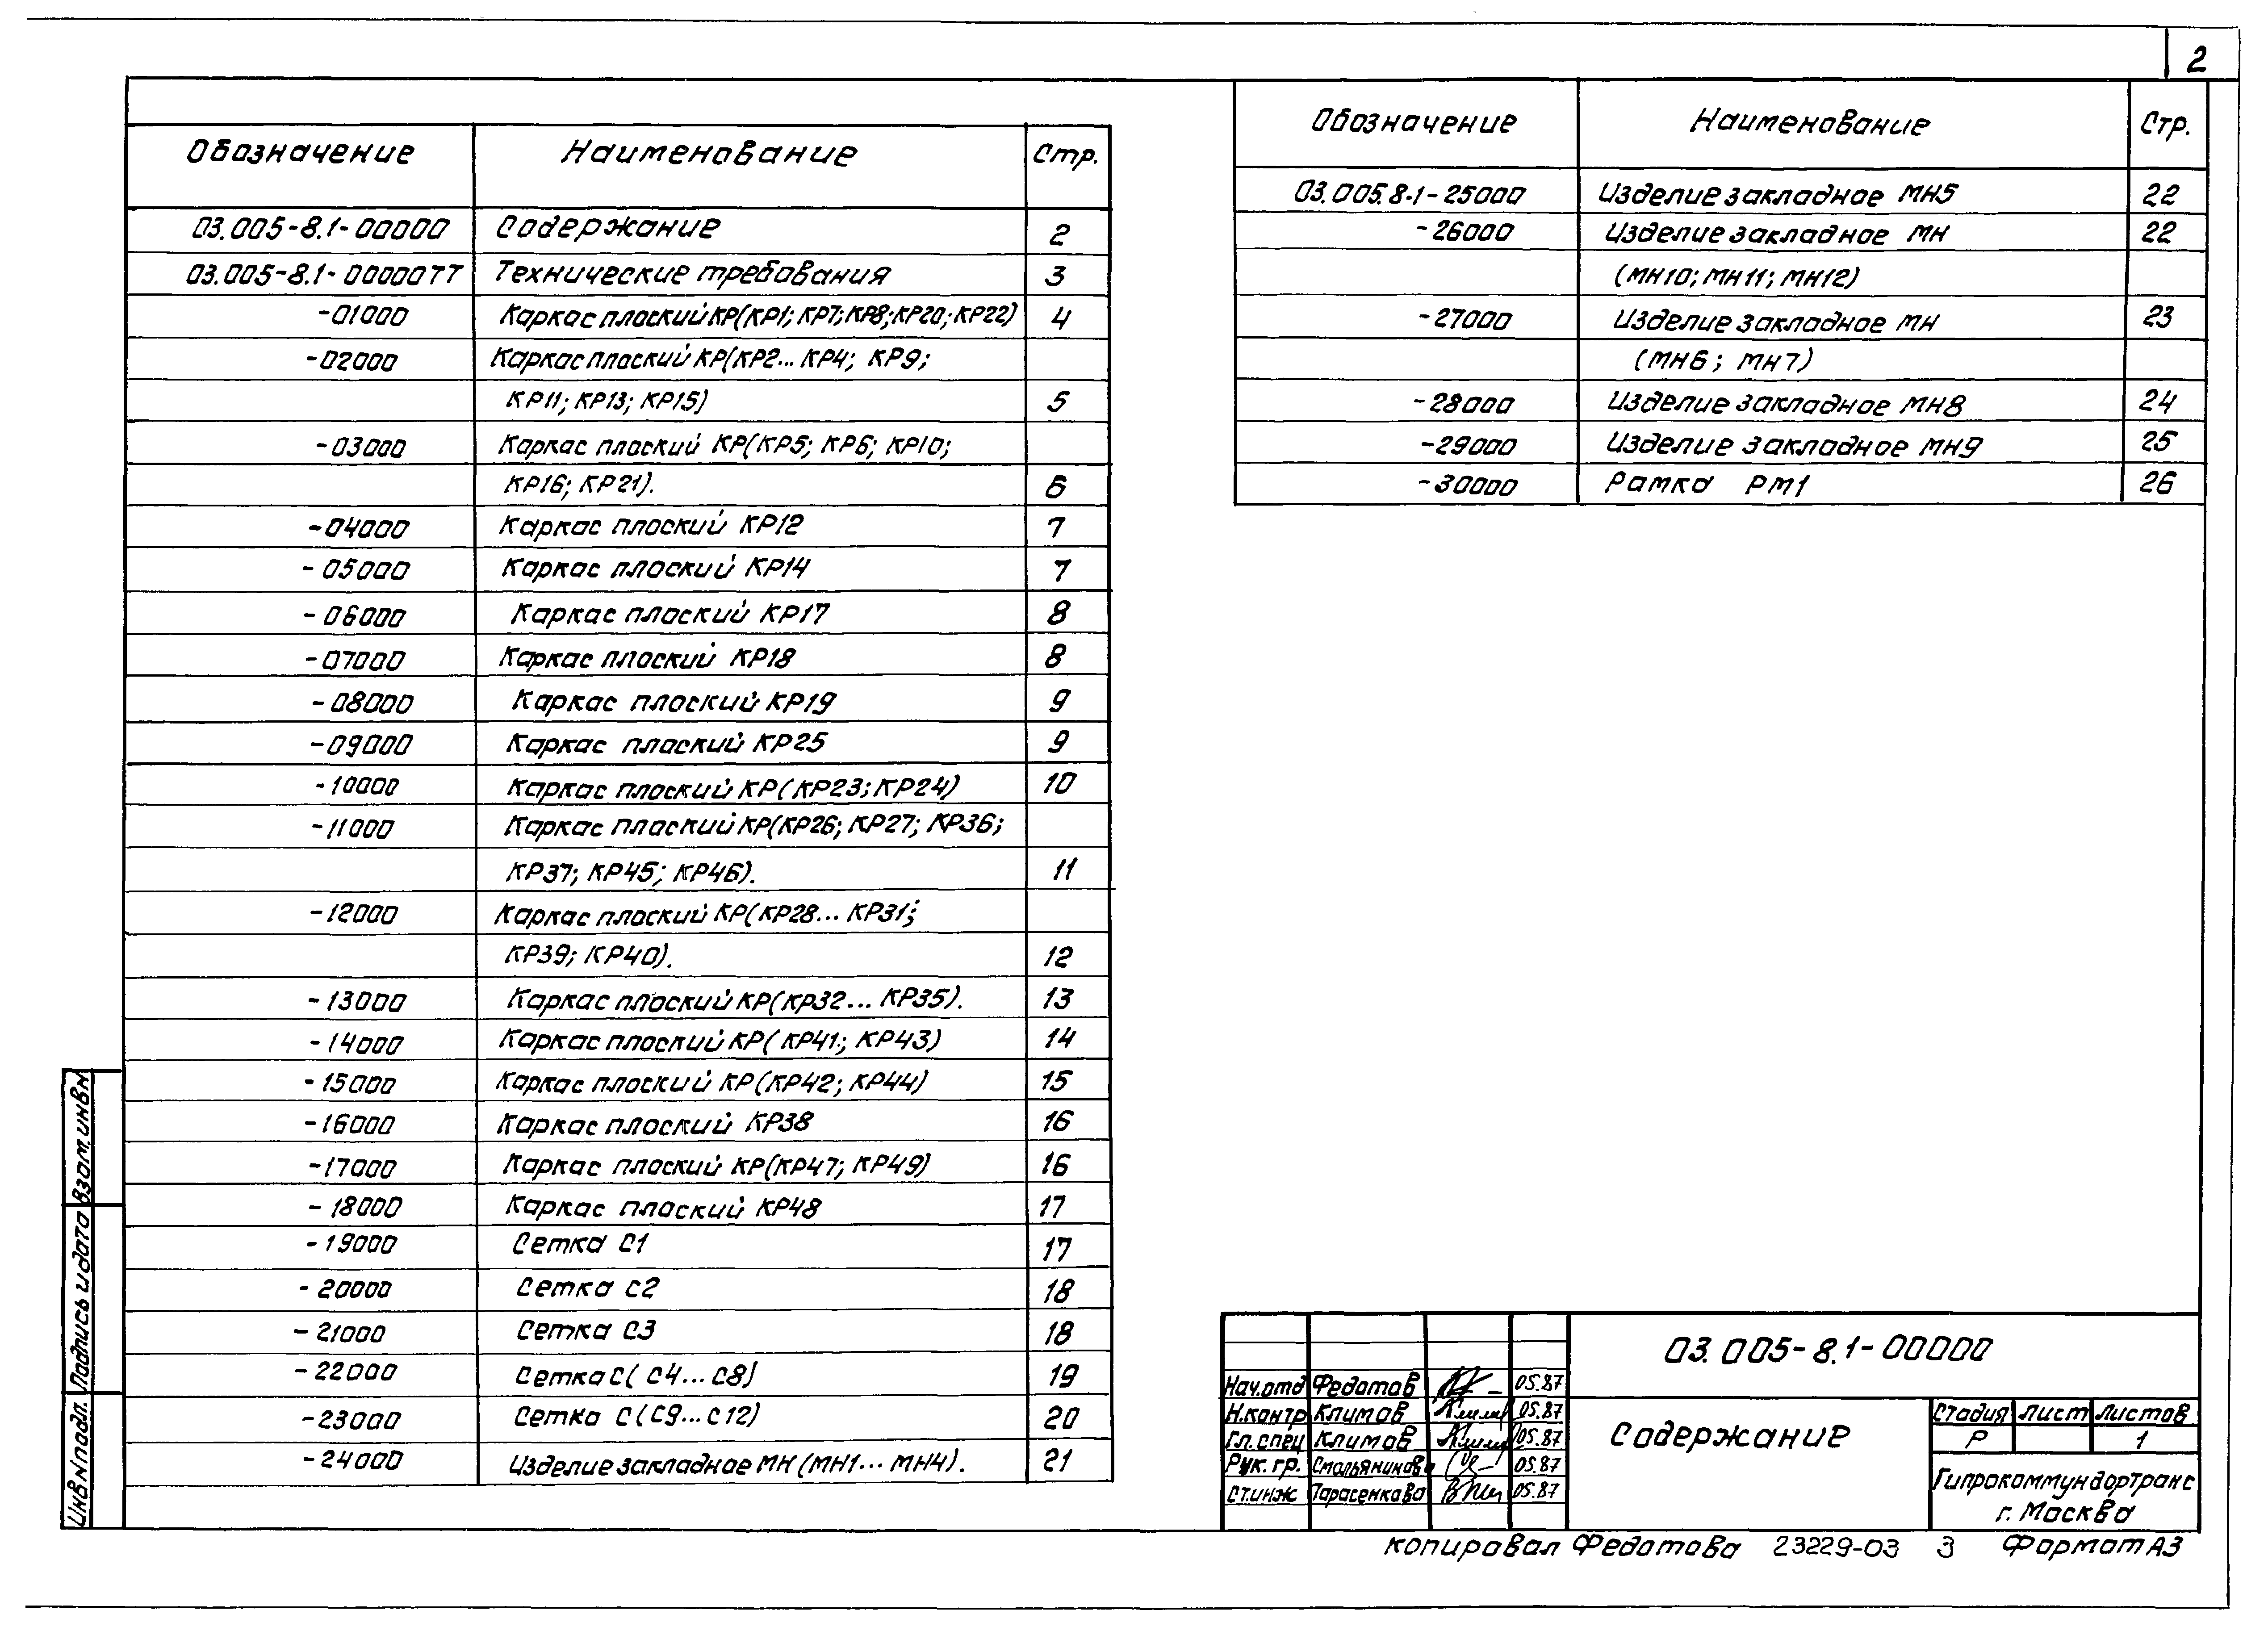 2
Обозначение Наименование Стр.
03.005-8.1-00000 Содержание 2
03.005-8.1-00000ТТ Технические требования 3
-01000 Каркас плоский КР(КР1; КР7; КР8; КР20; КР22) 4
-02000 Каркас плоский КР(КР2... КР4; КР9;
КР11; КР13; КР15) 5
-03000 Каркас плоский КР(КР5; КР6; КР10;
КР16; КР21). 6
-04000 Каркас плоский КР12 7
-05000 Каркас плоский КР14 7
-06000 Каркас плоский КР17 8
-07000 Каркас плоский КР18 8
-08000 Каркас плоский КР19 9
-09000 Каркас плоский КР25 9
-10000 Каркас плоский КР(КР23; КР24) 10
-11000 Каркас плоский КР(КР26; КР27; КР36;
КР37; КР45; КР46). 11
-12000 Каркас плоский КР(КР28... КР31;
КР39; КР40). 12
-13000 Каркас плоский КР(КР32... КР35). 13
-14000 Каркас плоский КР(КР41; КР43) 14
-15000 Каркас плоский КР(КР42; КР44) 15
-16000 Каркас плоский КР38 16
-17000 Каркас плоский КР(КР47; КР49) 16
-18000 Каркас плоский КР48 17
-19000 Сетка С1 17
-20000 Сетка С2 18
-21000 Сетка С3 18
-22000 Сетка С(С4...С8) 19
-23000 Сетка С(С9...С12) 20
-24000 Изделие закладное МН(МН1... МН4). 21
Обозначение Наименование Стр.
03.005.8.1-25000 Изделие закладное МН5 22
-26000 Изделие закладное МН 22
(МН10; МН11; МН12)
-27000 Изделие закладное МН 23
(МН6; МН7)
-28000 Изделие закладное МН8 24
-29000 Изделие закладное МН9 25
-30000 Рамка РМ1 26
Взам.инв№
Подпись и дата
Инв№подл.
Нач.отд Федотов 05.87
Н.контр Климов 05.87
Гл.спец Климов 05.87
Рук.гр. Смольянинова 05.87
Ст.инж Тарасенкова 05.87
03.005-8.1-00000
Содержание
Стадия Лист Листов
Р 1
Гипрокоммундортранс
г. Москва
Копировал Федотова 23229-03 3 Формат А3